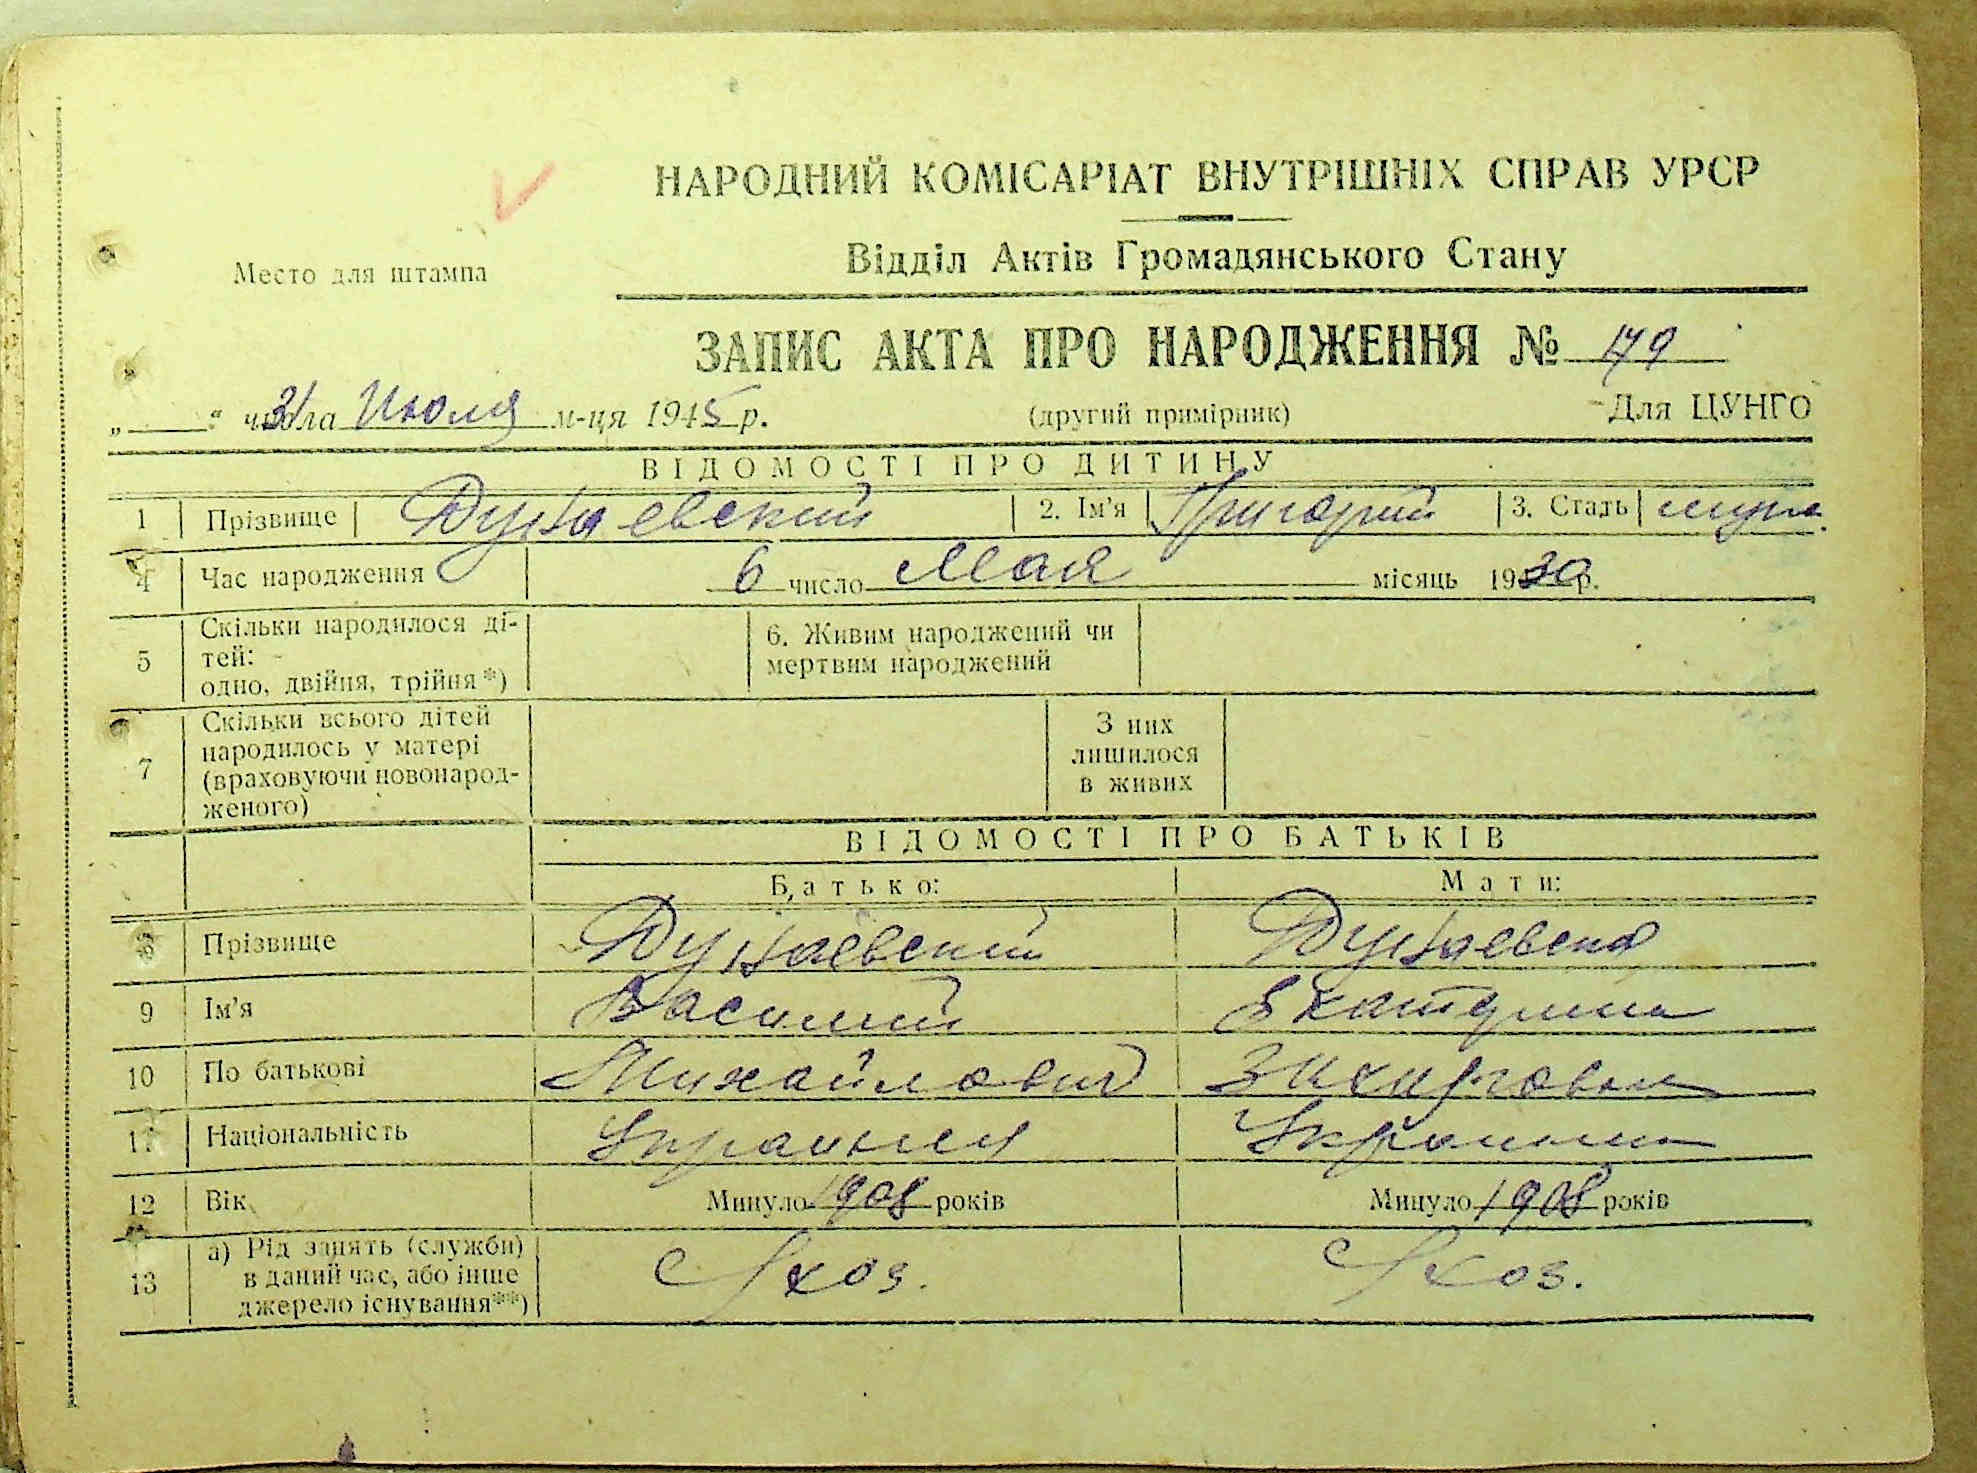 НАРОДНИЙ КОМІСАРІАТ ВНУТРІШНІХ СПРАВ УРСР
Відділ Актів Громадянського Стану
Место для штампа
ЗАПИС АКТА ПРО НАРОДЖЕННЯ № 179
„ “ числа 31 Июля м-ця 1945 р. (другий примірник) Для ЦУНГО
ВІДОМОСТІ ПРО ДИТИНУ
1 Прізвище Дунаевский 2. Ім'я Григорий 3. Стать муж.
4 Час народження 6 число Мая місяць 1930 р.
5 Скільки народилося ді-
тей:
одно, двійня, трійня*)
6. Живим народжений чи
мертвим народжений
7 Скільки всього дітей
народилось у матері
(враховуючи новонарод-
женого)
З них
лишилося
в живих
ВІДОМОСТІ ПРО БАТЬКІВ
Батько: Мати:
8 Прізвище Дунаевский Дунаевская
9 Ім'я Василий Екатерина
10 По батькові Михайлович
11 Національність Украинец Украинка
12 Вік Минуло 1908 років Минуло 1908 років
13 а) Рід занять (служби)
в даний час, або інше
джерело існування**)
С/хоз. С/хоз.